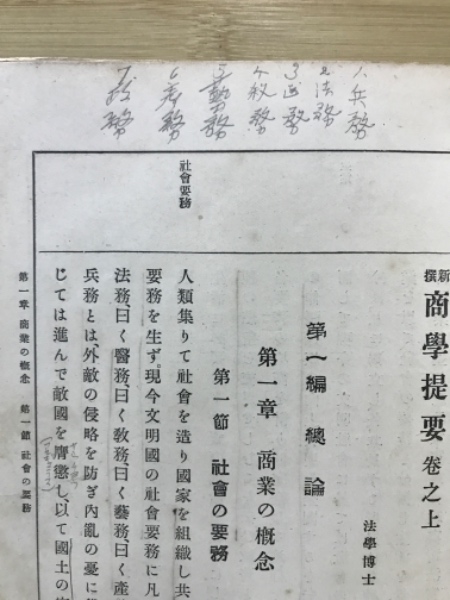 1兵務
2法務
3医務
4教務
5藝務
6産務
7政務
社會要務
新撰 商學提要 卷之上
法學博士
第一編 總論
第一章 商業の概念
第一節 社會の要務
人類集りて社會を造り國家を組織し共
要務を生ず。現今文明國の社會要務に凡
法務、曰く醫務、曰く教務、曰く藝務、曰く產
兵務とは、外敵の侵略を防ぎ內亂の憂に
じては進んで敵國を膺懲し以て國土の
第一章 商業の概念 第一節 社會の要務